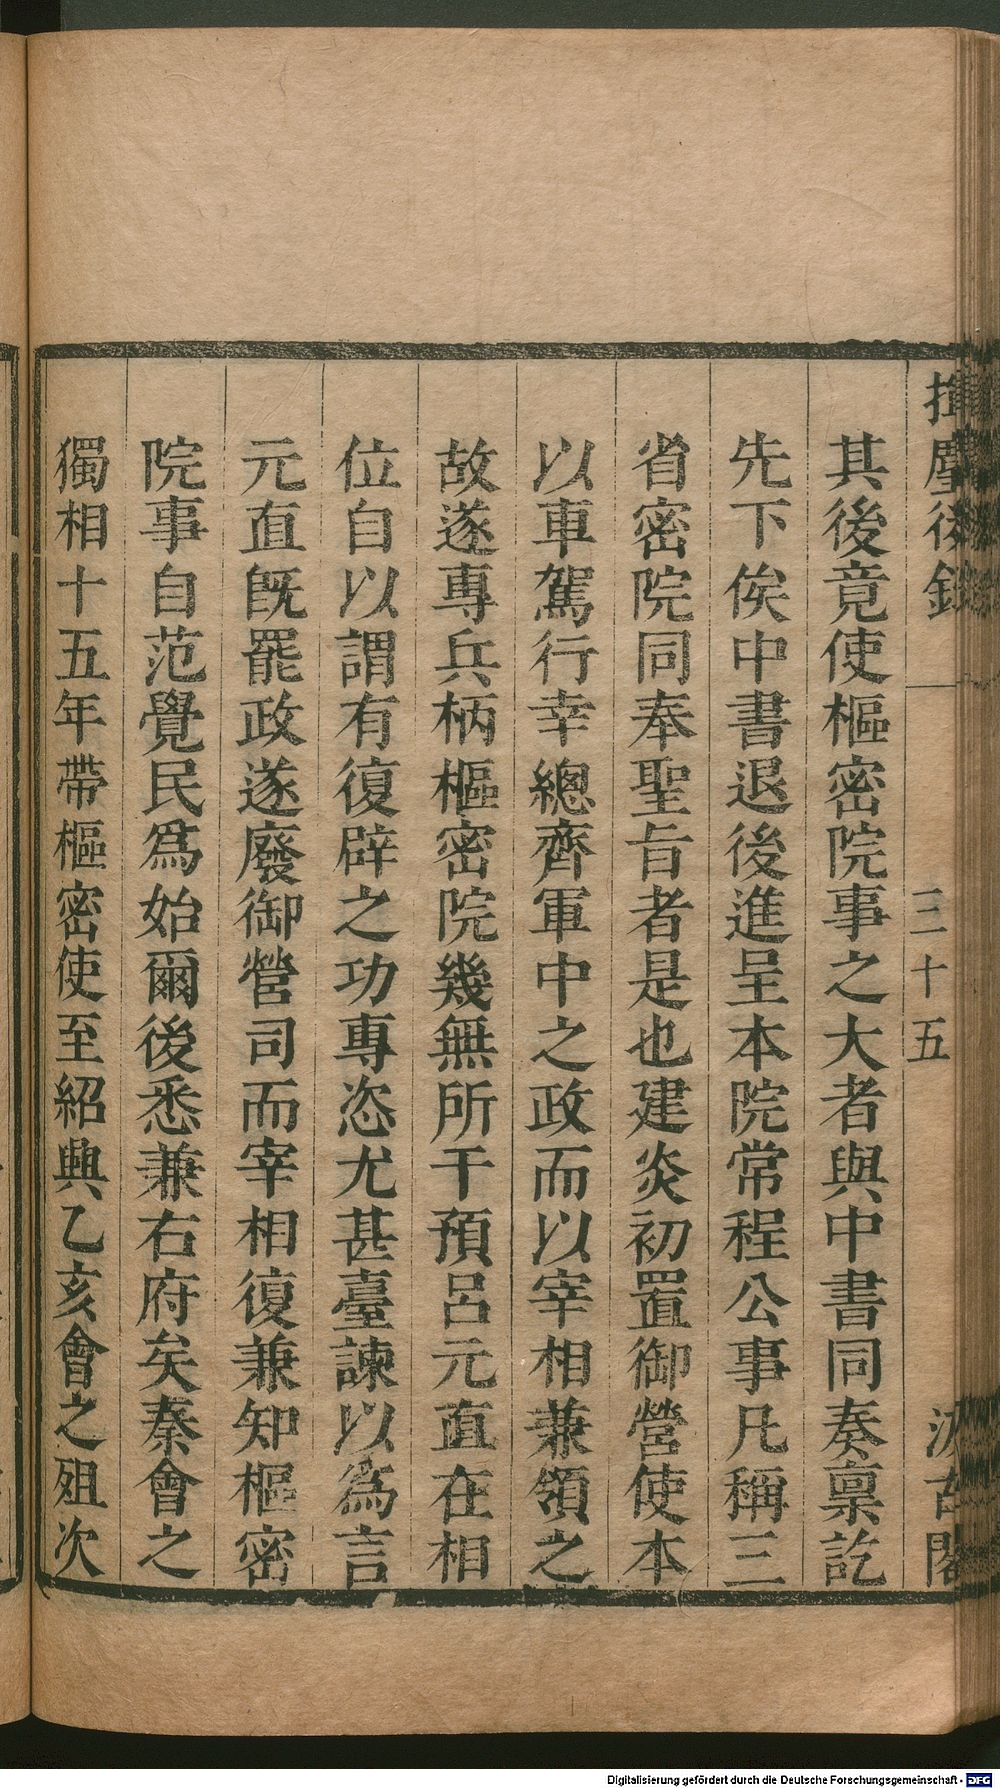 揮麈後錄
三十五
汲古閣
其後竟使樞密院事之大者與中書同奏禀訖
先下俟中書退後進呈本院常程公事凡稱三
省密院同奉聖旨者是也建炎初置御營使本
以車駕行幸總齊軍中之政而以宰相兼領之
故遂專兵柄樞密院幾無所干預呂元直在相
位自以謂有復辟之功專恣尤甚臺諫以為言
元直旣罷政遂廢御營司而宰相復兼知樞密
院事自范覺民爲始爾後悉兼右府矣秦會之
獨相十五年帶樞密使至紹興乙亥會之殂次
Digitalisierung gefördert durch die Deutsche Forschungsgemeinschaft - DFG